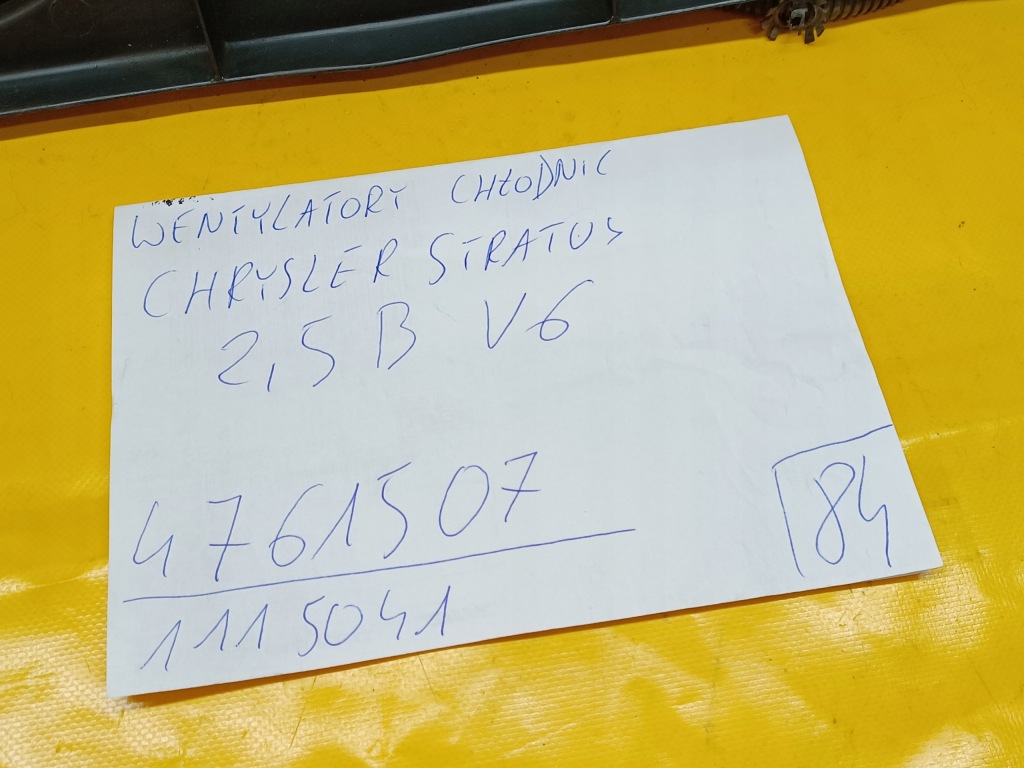 WENTYLATORY CHŁODNIC
CHRYSLER STRATUS
2,5 B V6
4761507
1115041
84